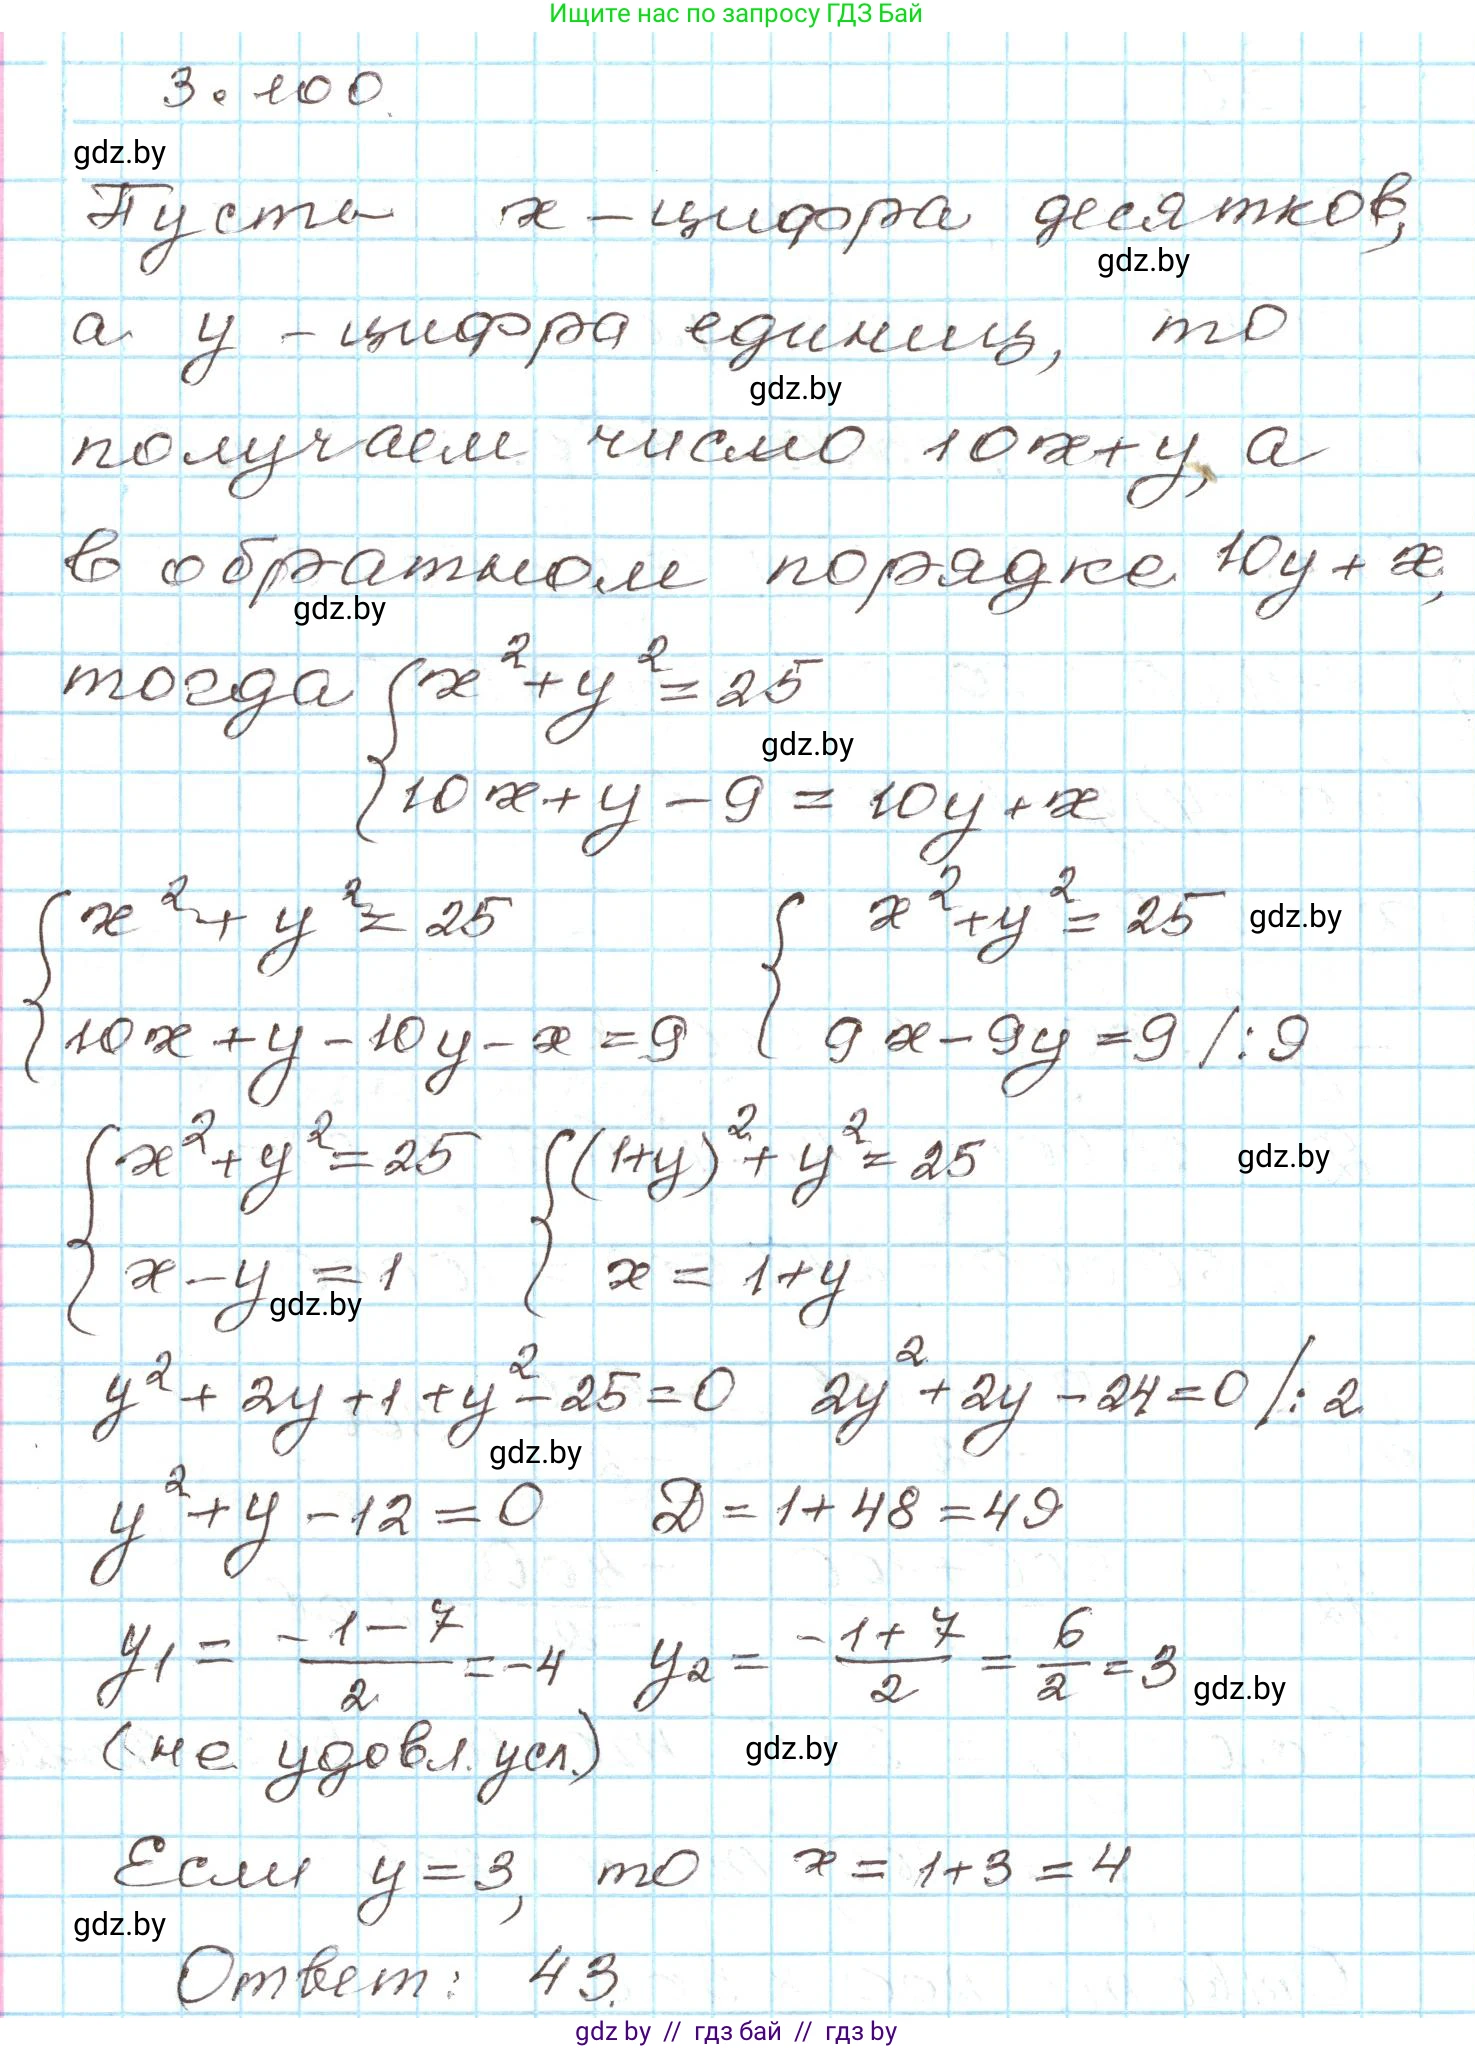 Ищите нас по запросу ГДЗ Бай
3.100
gdz.by
Пусть x - цифра десятков,
gdz.by
а y - цифра единиц, то
gdz.by
получаем число 10x+y, а
в обратном порядке 10y + x,
gdz.by
тогда { x² + y² = 25
gdz.by
10x + y - 9 = 10y + x
{ x² + y² = 25 { x² + y² = 25 gdz.by
10x + y - 10y - x = 9 9x - 9y = 9 /:9
{ x² + y² = 25 { (1+y)² + y² = 25 gdz.by
x - y = 1 x = 1+y
gdz.by
y² + 2y + 1 + y² - 25 = 0 2y² + 2y - 24 = 0 /:2
gdz.by
y² + y - 12 = 0 D = 1 + 48 = 49
y₁ = (-1-7)/2 = -4 y₂ = (-1+7)/2 = 6/2 = 3 gdz.by
(не удовл. усл.) gdz.by
Если y = 3, то x = 1+3 = 4
gdz.by
Ответ: 43.
gdz by // гдз бай // гдз by